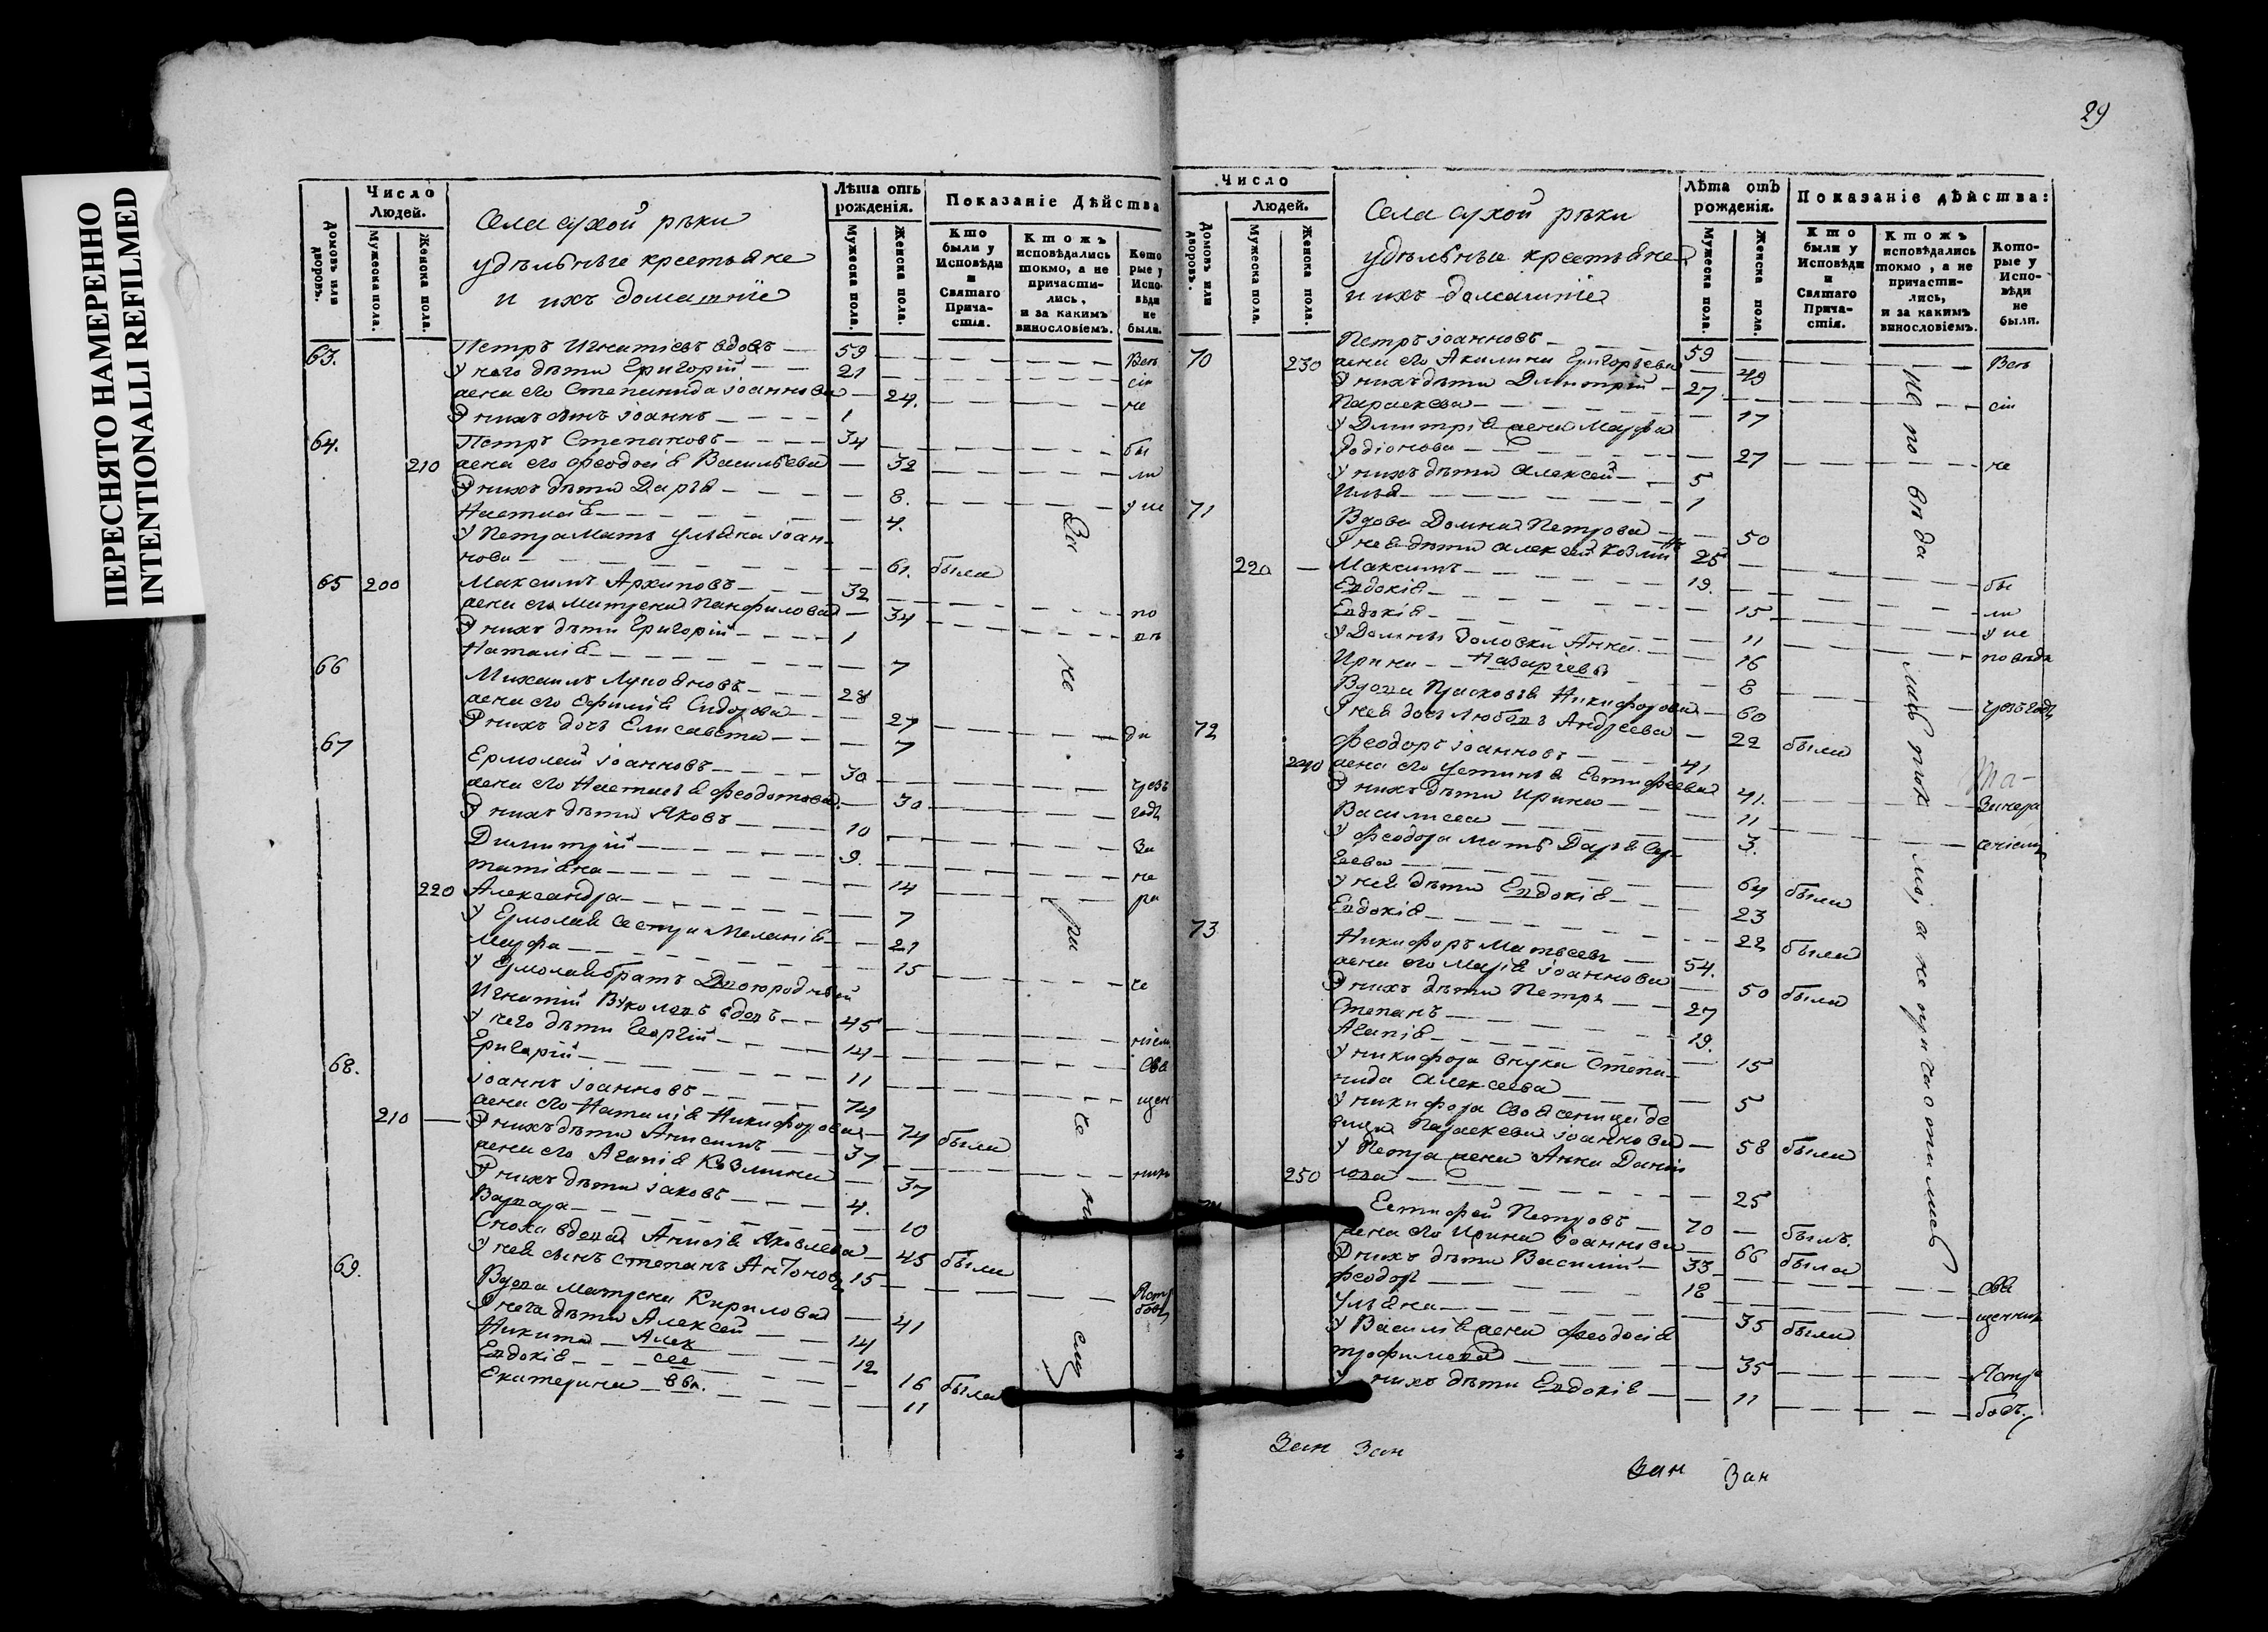 ПЕРЕСНЯТО НАМЕРЕННО
INTENTIONALLI REFILMED
Число Людей.
Домовъ или дворовъ.
Мужеска пола.
Женска пола.
Села сухой рѣки
удѣльныѣ крестьяне
и ихъ домашніе
Лѣта отъ рожденія.
Мужеска пола.
Женска пола.
Показаніе Дѣйства
Кто были у Исповѣди и Святаго Прича-стія.
Ктожъ исповѣдались токмо, а не причасти-лись, и за какимъ винословіемъ.
Кото рые у Испо-вѣди не были.
63. Петръ Игнатіевъ вдовъ — 59 Всѣ
У него дѣти Григорій — 21 сіи
жена его Степанида Іоаннова — 24. не
У нихъ сынъ Іоаннъ — 1
64. Петръ Степановъ — 34 бы
210 жена его Феодосія Васильева — 32 ли
У нихъ дѣти Дарья — 8. у ис
Настасія — 4.
У Петра мать Ульяна Іоан-
нова — 61. была
65 200 Максимъ Архиповъ — 32
жена его Матрена Панфилова — 34 по
У нихъ дѣти Григорій — 1 вѣ
Наталія — 7
66 Михаилъ Лупояновъ — 28
жена его Ефимія Сидорова — 27
У нихъ дочь Елисавета — 7 ди
67 Ермолай Іоанновъ — 30
жена его Настасія Феодотова — 30 чрезъ
У нихъ дѣти Яковъ — 10 годъ
Димитрій — 9. За
Татіана — 14 не
220 Александра — 7 ра
У Ермолая сестра Меланія — 21
Марфа — 15
У Ермолая братъ Двоюродный че
Игнатій Вуколовъ вдовъ — 45
У него дѣти Георгій — 14 ніемъ
Григорій — 11 Свя
68. Іоаннъ Іоанновъ — 74 щен
жена его Наталія Никифорова — 74 была
210 У нихъ дѣти Анисимъ — 37
жена его Агапія Козмина — 37 никъ
У нихъ дѣти Іаковъ — 4.
Варвара — 10
Сноха вдова Анисія Яковлева — 45 была
У нея сынъ Степанъ Антоновъ 15
69. Вдова Матрена Кирилова — 41
У нега дѣти Алексей — 14
Никита — Алек 12
Евдокія — сее 16 была
Екатерина — ввы. 11
За не ра че ні ем
29
Число Людей.
Домовъ или дворовъ.
Мужеска пола.
Женска пола.
Села сухой рѣки
удѣльныѣ крестьяне
и ихъ домашніе
Лѣта отъ рожденія.
Мужеска пола.
Женска пола.
Показаніе дѣйства:
Кто были у Исповѣди и Святаго Прича-стія.
Ктожъ исповѣдались токмо, а не причасти-лись, и за какимъ винословіемъ.
Кото-рые у Испо-вѣди не были.
70 Петръ Іоанновъ — 59 Всѣ
230 жена его Акилина Григорьева — 49
У нихъ дѣти Димитрій — 27 сіи
Параскева — 17
У Дмитрія жена Марфа
Родіонова — 27 не
У нихъ дѣти Алексей — 5
Илья — 1
71 Вдова Домна Петрова — 50
У нея дѣти Алексей Козминъ 25
220 Максимъ — 19. бы
Евдокія — 15 ли
Евдокія — 11 у ис
У Домны Золовки Анна — 16 повѣди
Ирина — Назаріевы 8
Вдова Прасковья Никифорова — 60 чрезъ годъ
У нея дочь Любовь Андреева — 22 была
72 Феодоръ Іоанновъ — 41
240 жена его Устинья Евтифеева 41.
У нихъ дѣти Ирина — 11 За нера
Василиса — 3.
У Феодора мать Дарья Сер- ченіемъ
геева — 64 была
У нея дѣти Евдокія — 23
Евдокія — 22 была
73 Никифоръ Матвеевъ — 54.
жена его Марія Іоаннова — 50 была
У нихъ дѣти Петръ — 27
Степанъ — 19.
Агапія — 15
У Никифора внука Степа-
нида Алексеева — 5
У Никифора Свояченица де
вица Параскева Іоаннова — 58 была
У Петра жена Анна Даніи
250 лова — 25
Евтифей Петровъ — 70 — былъ.
жена его Ирина Іоаннова — 66 была
У нихъ дѣти Василій — 33
Феодоръ — 18 Свя
Ульяна — 35 была щенникъ
У Василія жена Феодосія
Трофимова — 35
У нихъ дѣти Евдокія — 11
Зан Зан
Зан Зан